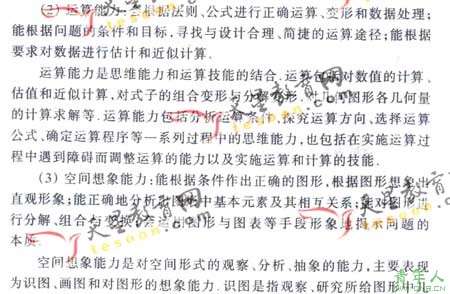 (2) 运算能力:会根据法则、公式进行正确运算、变形和数据处理;
能根据问题的条件和目标,寻找与设计合理、简捷的运算途径;能根据
要求对数据进行估计和近似计算.
运算能力是思维能力和运算技能的结合.运算包括对数值的计算、
估值和近似计算,对式子的组合变形与分解变形,对几何图形各几何量
的计算求解等.运算能力包括分析运算条件、探究运算方向、选择运算
公式、确定运算程序等一系列过程中的思维能力,也包括在实施运算过
程中遇到障碍而调整运算的能力以及实施运算和计算的技能.
(3) 空间想象能力:能根据条件作出正确的图形,根据图形想象出
直观形象;能正确地分析出图形中基本元素及其相互关系;能对图形进
行分解、组合与变换;会运用图形与图表等手段形象地揭示问题的
本质.
空间想象能力是对空间形式的观察、分析、抽象的能力,主要表现
为识图、画图和对图形的想象能力.识图是指观察、研究所给图形中几
天星教育网
tesoon.com
天星教育网
tesoon.com
天星教育网
tesoon.com
青年人